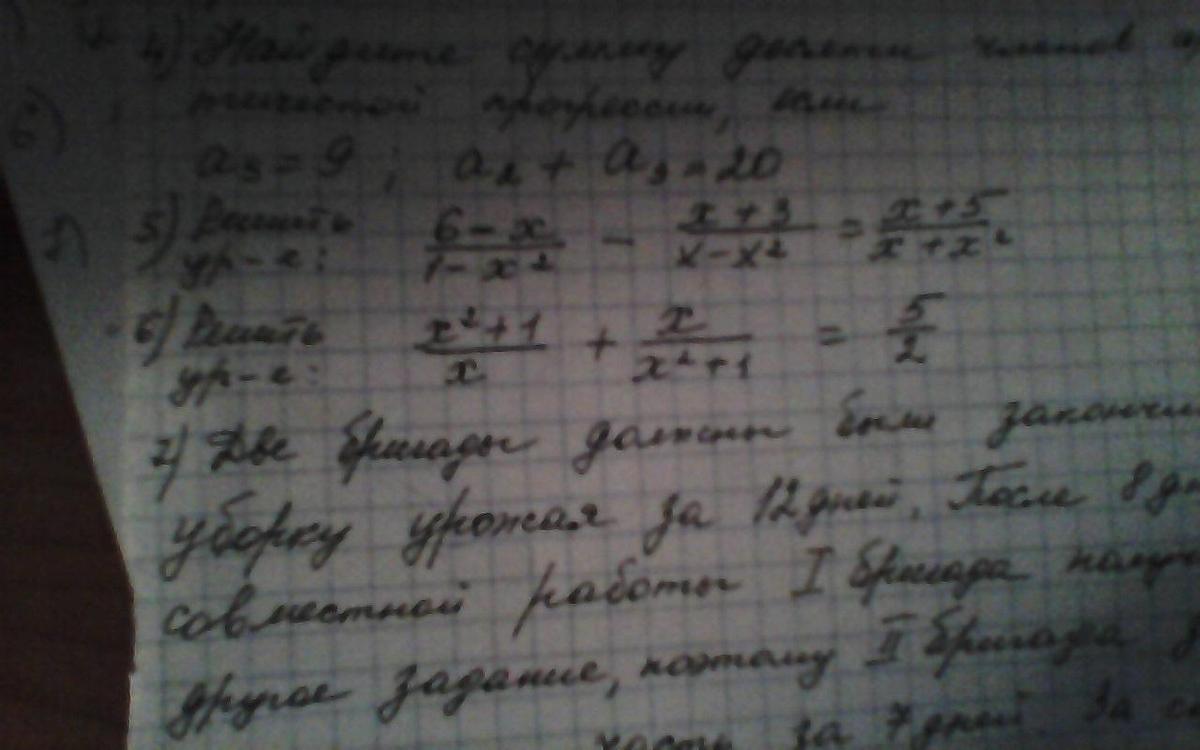 4) Найдите сумму десяти членов а
тической прогрессии, если
a₃ = 9 ; a₂ + a₉ = 20
5) Решить
ур-е: (6 - x)/(1 - x²) - (x + 3)/(x - x²) = (x + 5)/(x + x²)
6) Решить
ур-е: (x² + 1)/x + x/(x² + 1) = 5/2
7) Две бригады должны были закончи
уборку урожая за 12 дней. После 8 дн
совместной работы I бригада получ
другое задание, поэтому II бригада
часть за 7 дней. За с